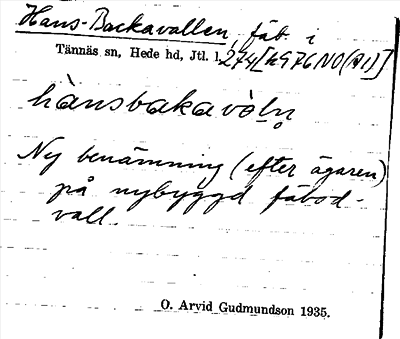 Hans-Backavallen, fäb. i
Tännäs sn, Hede hd, Jtl. l.
hànsbakavòln̥
Ny benämning (efter ägaren)
på nybyggd fäbod-
vall.
O. Arvid Gudmundson 1935.